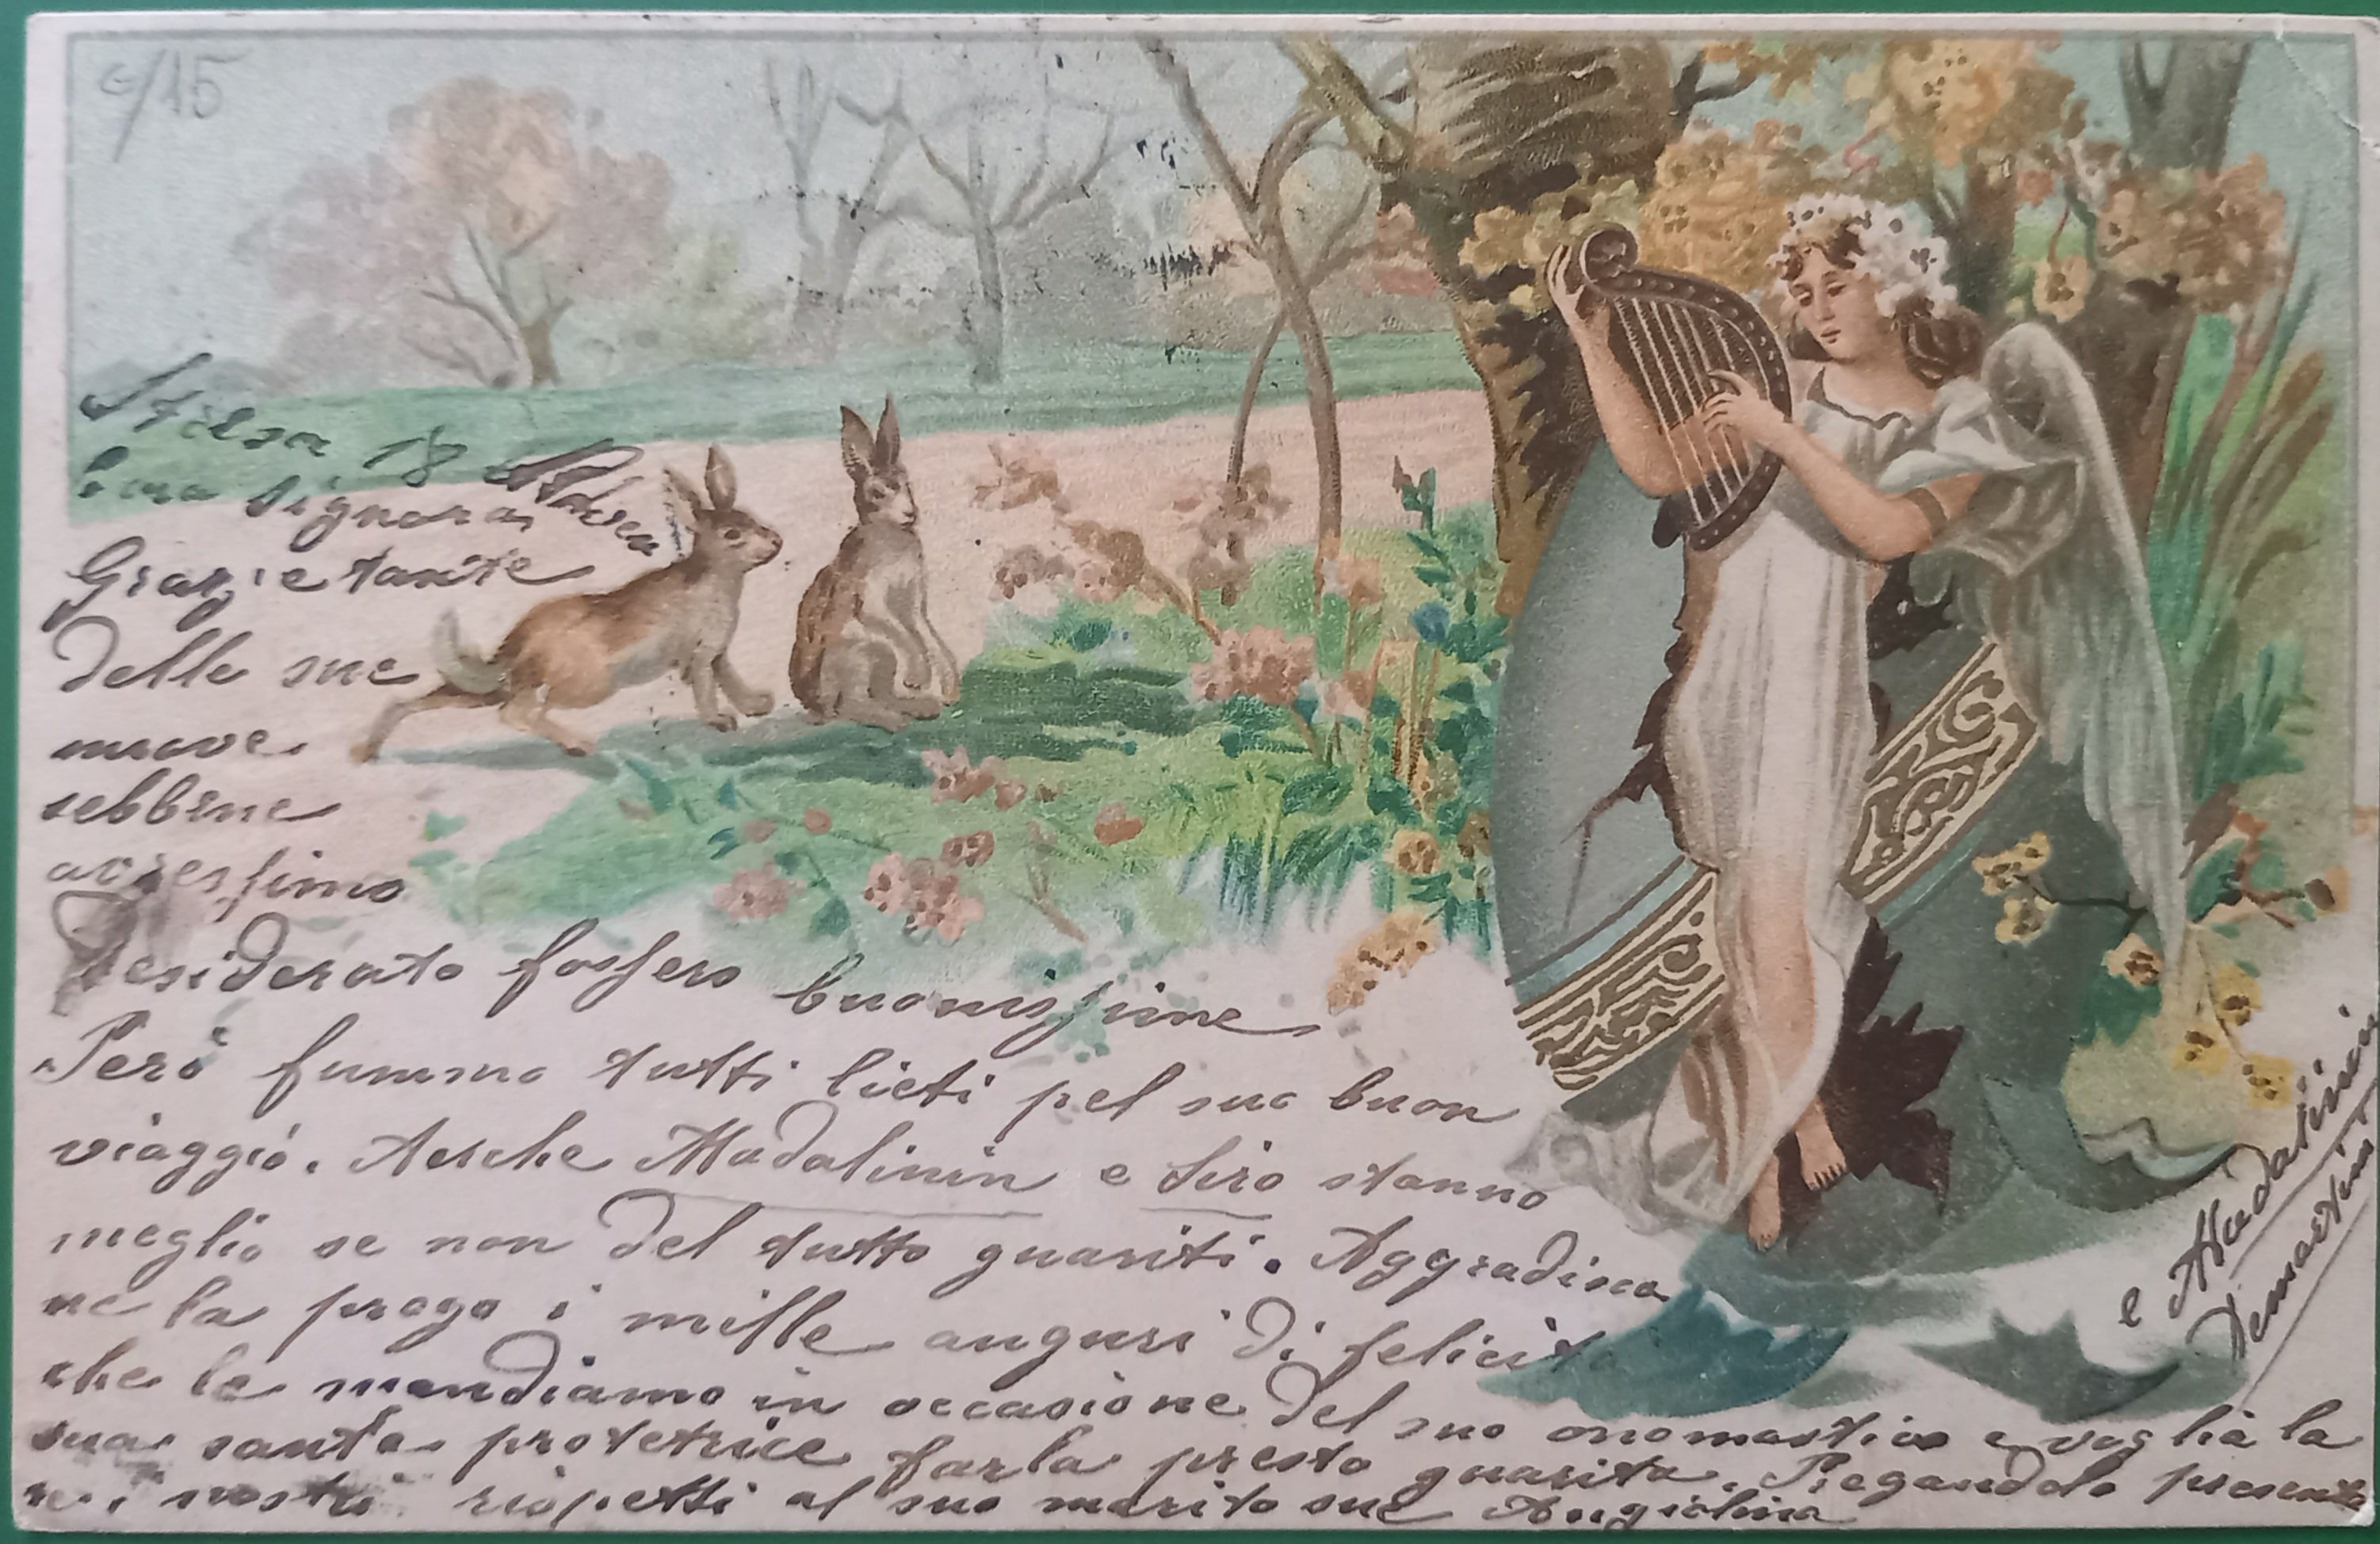 c/15
18
signora
Grazie tante
delle sue
nuove
sebbene
avressimo
desiderato fossero buonissime
Però fummo tutti lieti pel suo buon
viaggio. Anche Madalinin e Siro stanno
meglio se non del tutto guariti. Aggradisca
ne la prego i mille auguri di felicità
che le mandiamo in occasione del suo onomastico e voglia la
sua santa protetrice farla presto guarita. Pregandola presenta
re i nostri rispetti al suo marito sue Angiolina
e Madalinin